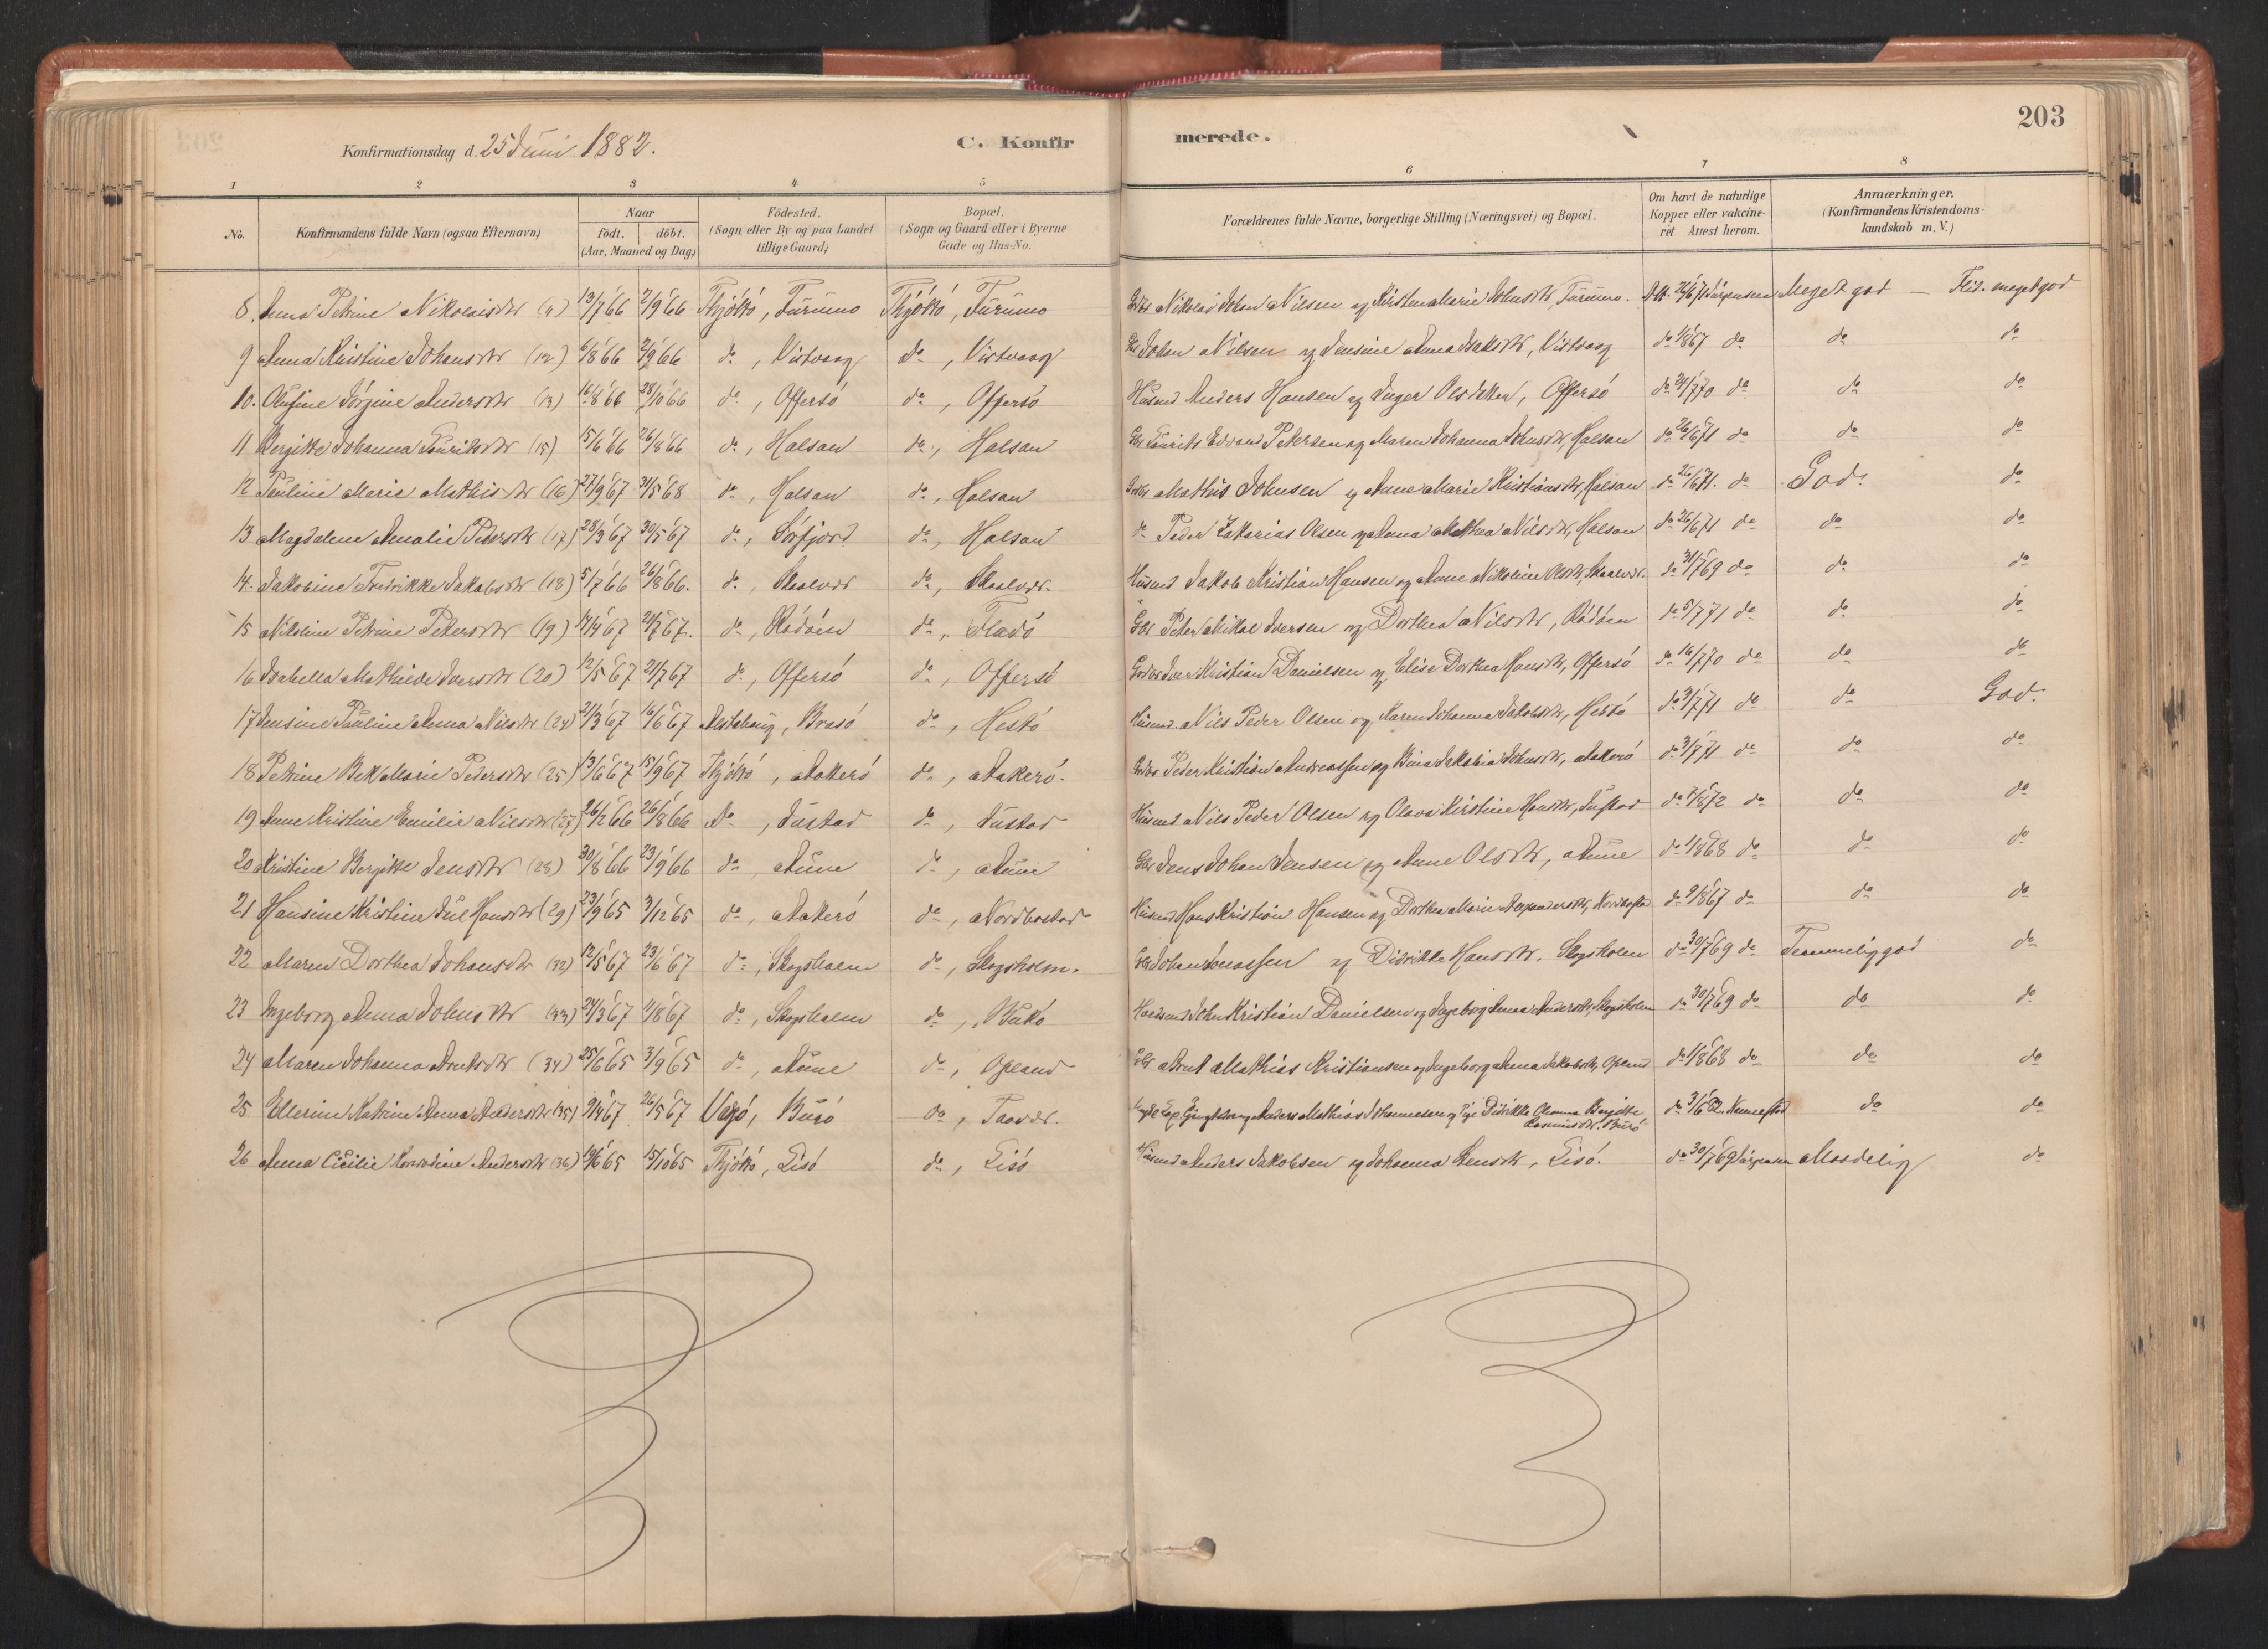 203
Konfirmationsdag d. 25 Juni 1882.
C. Konfirmerede.
1 2 3 4 5 6 7 8
No.
Konfirmandens fulde Navn (ogsaa Efternavn)
Naar
födt. döbt.
(Aar, Maaned og Dag)
Födested.
(Sogn eller By og paa Landet
tillige Gaard)
Bopæl.
(Sogn og Gaard eller i Byerne
Gade og Hus-No.
Forældrenes fulde Navne, borgerlige Stilling (Næringsvei) og Bopæl.
Om havt de naturlige
Kopper eller vakcine-
ret. Attest herom.
Anmærkninger.
(Konfirmandens Kristendoms-
kundskab m. V.)
8. Anna Petrine Nikolaisdtr 13/7 66 2/9 66 Thjöttö, Furumo Thjöttö, Furumo Nikolai Johan Nilsen og Kirstine Marie Johnsdtr, Furumo. Att. 26/6 71 Jörgensen Meget god — Flid. meget god
9 Anna Kristine Johansdtr (12) 6/8 66 2/9 66 do, Vistvaag do, Vistvaag Johan Nilsen og Jensine Anna Isaksdtr, Vistvaag do 1/8 67 do do do
10. Olufine Jörgine Andersdtr (13) 16/8 66 28/10 66 do, Offersö do, Offersö Husmd Anders Hansen og Inger Olsdatter, Offersö do 24/7 70 do do do
11 Bergitte Johanna Lauritsdtr (15) 15/6 66 26/8 66 do, Halsan do, Halsan Laurits Edvard Petersen og Maren Johanna Johnsdtr, Halsan do 26/6 71 do do do
12 Pauline Marie Mathisdtr (16) 27/9 67 21/5 68 do, Halsan do, Halsan Mathis Johnsen og Anne Marie Kristiansdtr, Halsan do 26/6 71. do God. do
13 Magdalena Amalie Pedersdtr (17) 28/3 67 30/5 67 do, Sörfjord do, Halsan do Peder Zakarias Olsen og Anna Mathea Nilsdtr, Halsan do 26/6 71 do do do
14. Jakobine Fredrikke Jakobsdtr (18) 5/7 66 26/8 66. do, Skaalvær do, Skaalvær. Husmd Jakob Kristian Hansen og Anne Nikoline Olsdtr, Skaalvær. do 31/7 69 do do do
15 Nikoline Petrine Petersdtr (19) 14/4 67 21/7 67. do, Rödöen do, Fladö Peter Mikal Iversen og Dorthea Nilsdtr, Rödöen do 5/7 71 do do do
16 Isabella Mathilde Iversdtr (20) 12/5 67 21/7 67 do, Offersö do, Offersö Iver Kristian Danielsen og Elise Dorthea Hansdtr, Offersö do 16/7 70 do do do
17 Jensine Pauline Anna Nilsdtr (24) 21/3 67 16/6 67 Alstahaug, Brasö do, Hestö Husmd Nils Peder Olsen og Maren Johanna Jakobsdtr, Hestö do 3/7 71 do do God.
18 Petrine Marie Pedersdtr (25) 13/6 67 15/9 67 Thjöttö, Aakerö do, Aakerö. Peder Kristian Andreassen og Jakobia Johnsdtr, Aakerö do 3/7 71 do do do
19 Anne Kristine Emilie Nilsdtr (27) 26/2 66 26/8 66 Do, Tustad do, Tustad Husmd Nils Peder Olsen og Olava Kirstine Hansdtr, Tustad do 7/8 72 do do do
20 Kristine Bergitte Jensdtr (28) 30/8 66 23/9 66 do, Aune do, Aune Jens Johan Jensen og Anne Olsdtr, Aune do 1/8 68 do do do
21 Hansine Kristine Hansdtr (29) 23/9 65 3/12 65 do, Aakerö do, Nordbostad Husmd Hans Kristian Hansen og Dorthea Marie do 9/8 67 do do do
22 Maren Dorthea Johansdtr (32) 12/5 67 23/6 67 do, Skogsholm do, Skogsholm. Johan Jonassen og Didrikke Hansdtr. Skogsholm do 30/7 69 do Temmelig god do
23 Ingeborg Anna Johnsdtr (33) 24/3 67 11/8 67 do, Skogsholm do, John Kristian Danielsen og Ingeborg Anna Andersdtr, Skogsholm do 30/7 69 do do do
24 Maren Johanna Arntsdtr (34) 25/6 65 3/9 65 do, Aune do, Opland Arnt Mathias Kristiansen og Ingeborg Anna Jakobsdtr, Opland do 1/8 68 do do do
25 Ellerine Katrine Anna Andersdtr (35) 9/4 67 26/5 67 Vegö, Burö do, Taavær. Anders Mathias Johannesen og Pige Didrikke Bergitte
Rasmusdtr. Burö do 3/6 82 do do
26 Anna Cicilie Konradine Andersdtr (36) 13/6 65 15/10 65 Thjöttö, Lisö do, Lisö Husmd Anders Jakobsen og Johanna Stensdtr, Lisö. do 30/7 69 Jörgensen Maadelig do